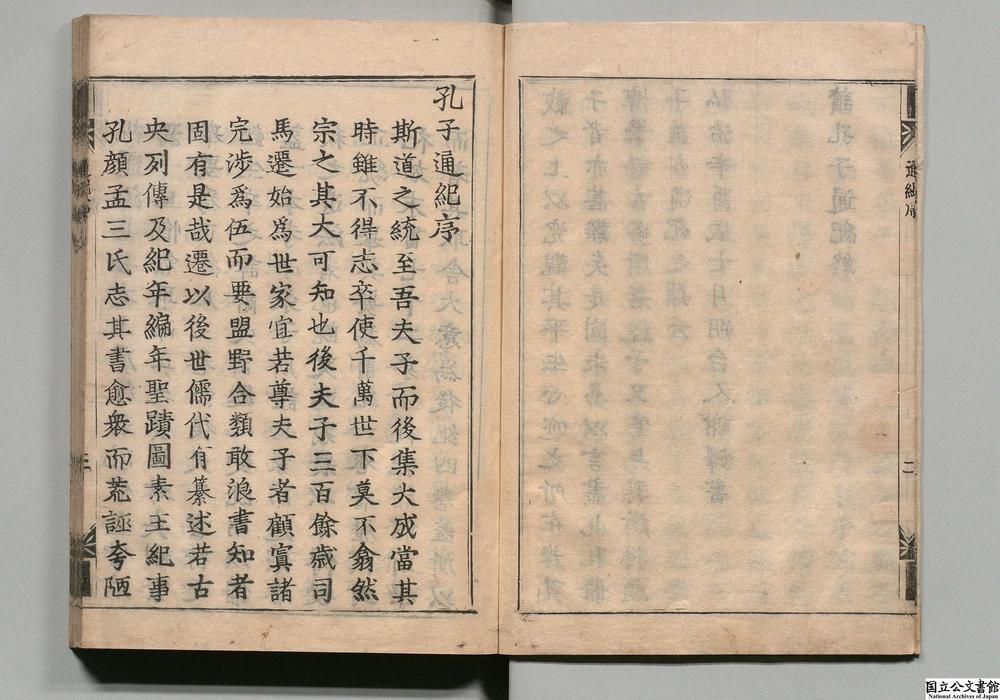 通紀序
二
孔子通紀序
斯道之統至吾夫子而後集大成當其
時雖不得志卒使千萬世下莫不翕然
宗之其大可知也後夫子三百餘歲司
馬遷始爲世家宜若尊夫子者顧寘諸
完涉爲伍而要盟野合類敢浪書知者
固有是哉遷以後世儒代有纂述若古
央列傳及紀年編年聖蹟圖素王紀事
孔顔孟三氏志其書愈衆而荒誣夸陋
国立公文書館
National Archives of Japan